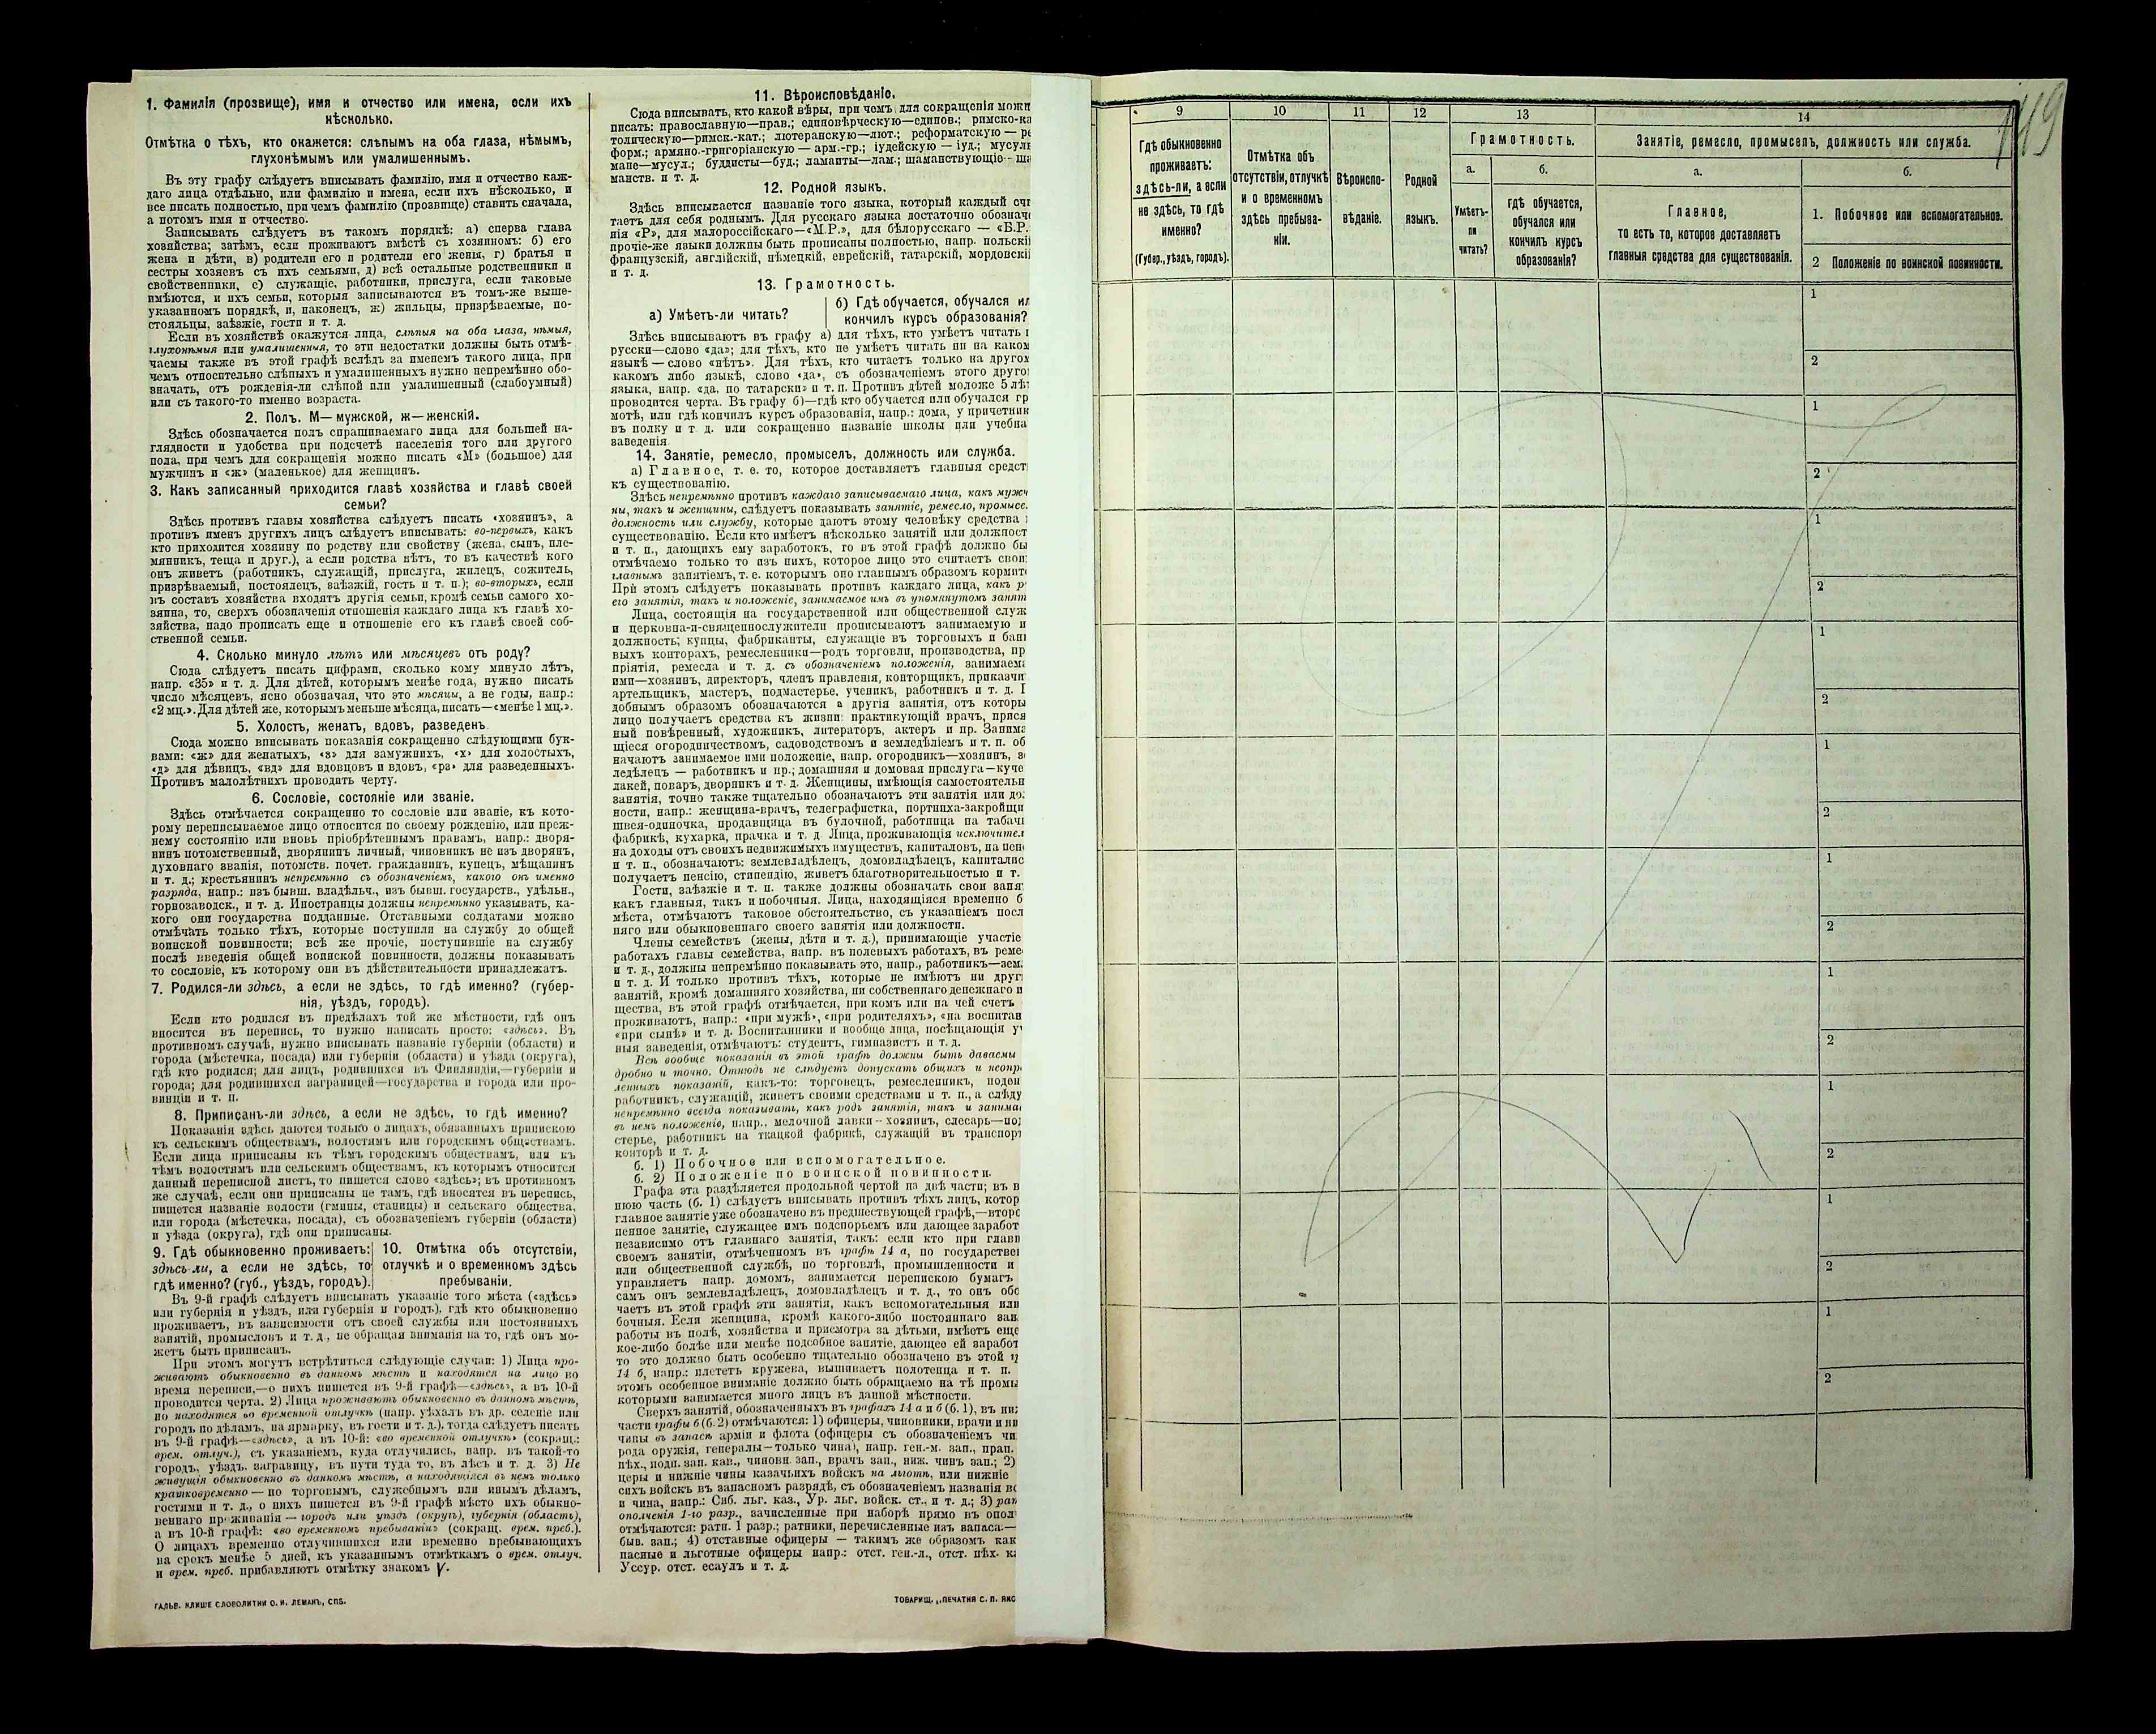 1. Фамилія (прозвище), имя и отчество или имена, если ихъ
нѣсколько.
Отмѣтка о тѣхъ, кто окажется: слѣпымъ на оба глаза, нѣмымъ,
глухонѣмымъ или умалишеннымъ.
Въ эту графу слѣдуетъ вписывать фамилію, имя и отчество каж-
даго лица отдѣльно, или фамилію и имена, если ихъ нѣсколько, и
все писать полностью, при чемъ фамилію (прозвище) ставить сначала,
а потомъ имя и отчество.
Записывать слѣдуетъ въ такомъ порядкѣ: а) сперва глава
хозяйства; затѣмъ, если проживаютъ вмѣстѣ съ хозяиномъ: б) его
жена и дѣти, в) родители его и родители его жены, г) братья и
сестры хозяевъ съ ихъ семьями, д) всѣ остальные родственники и
свойственники, е) служащіе, работники, прислуга, если таковые
имѣются, и ихъ семьи, которыя записываются въ томъ-же выше-
указанномъ порядкѣ, и, наконецъ, ж) жильцы, призрѣваемые, по-
стояльцы, заѣзжіе, гости и т. д.
Если въ хозяйствѣ окажутся лица, слѣпыя на оба глаза, нѣмыя,
глухонѣмыя или умалишенныя, то эти недостатки должны быть отмѣ-
чаемы также въ этой графѣ вслѣдъ за именемъ такого лица, при
чемъ относительно слѣпыхъ и умалишенныхъ нужно непремѣнно обо-
значать, отъ рожденія-ли слѣпой или умалишенный (слабоумный)
или съ такого-то именно возраста.
2. Полъ. М—мужской, ж—женскій.
Здѣсь обозначается полъ спрашиваемаго лица для большей на-
глядности и удобства при подсчетѣ населенія того или другого
пола, при чемъ для сокращенія можно писать «М» (большое) для
мужчинъ и «ж» (маленькое) для женщинъ.
3. Какъ записанный приходится главѣ хозяйства и главѣ своей
семьи?
Здѣсь противъ главы хозяйства слѣдуетъ писать «хозяинъ», а
противъ именъ другихъ лицъ слѣдуетъ вписывать: во-первыхъ, какъ
кто приходится хозяину по родству или свойству (жена, сынъ, пле-
мянникъ, теща и друг.), а если родства нѣтъ, то въ качествѣ кого
онъ живетъ (работникъ, служащій, прислуга, жилецъ, сожитель,
призрѣваемый, постоялецъ, заѣзжій, гость и т. п.); во-вторыхъ, если
въ составъ хозяйства входятъ другія семьи, кромѣ семьи самого хо-
зяина, то, сверхъ обозначенія отношенія каждаго лица къ главѣ хо-
зяйства, надо прописать еще и отношеніе его къ главѣ своей соб-
ственной семьи.
4. Сколько минуло лѣтъ или мѣсяцевъ отъ роду?
Сюда слѣдуетъ писать цифрами, сколько кому минуло лѣтъ,
напр. «35» и т. д. Для дѣтей, которымъ менѣе года, нужно писать
число мѣсяцевъ, ясно обозначая, что это мѣсяцы, а не годы, напр.:
«2 мц.». Для дѣтей же, которымъ меньше мѣсяца, писать—«менѣе 1 мц.».
5. Холостъ, женатъ, вдовъ, разведенъ.
Сюда можно вписывать показанія сокращенно слѣдующими бук-
вами: «ж» для женатыхъ, «з» для замужнихъ, «х» для холостыхъ,
«д» для дѣвицъ, «вд» для вдовцовъ и вдовъ, «рз» для разведенныхъ.
Противъ малолѣтнихъ проводить черту.
6. Сословіе, состояніе или званіе.
Здѣсь отмѣчается сокращенно то сословіе или званіе, къ кото-
рому переписываемое лицо относится по своему рожденію, или преж-
нему состоянію или вновь пріобрѣтеннымъ правамъ, напр.: дворя-
нинъ потомственный, дворянинъ личный, чиновникъ не изъ дворянъ,
духовнаго званія, потомств. почет. гражданинъ, купецъ, мѣщанинъ
и т. д.; крестьянинъ непремѣнно съ обозначеніемъ, какого онъ именно
разряда, напр.: изъ бывш. владѣльч., изъ бывш. государств., удѣльн.,
горнозаводск., и т. д. Иностранцы должны непремѣнно указывать, ка-
кого они государства подданные. Отставными солдатами можно
отмѣчать только тѣхъ, которые поступили на службу до общей
воинской повинности; всѣ же прочіе, поступившіе на службу
послѣ введенія общей воинской повинности, должны показывать
то сословіе, къ которому они въ дѣйствительности принадлежатъ.
7. Родился-ли здѣсь, а если не здѣсь, то гдѣ именно? (губер-
нія, уѣздъ, городъ).
Если кто родился въ предѣлахъ той же мѣстности, гдѣ онъ
вносится въ перепись, то нужно написать просто: «здѣсь». Въ
противномъ случаѣ, нужно вписывать названіе губерніи (области) и
города (мѣстечка, посада) или губерніи (области) и уѣзда (округа),
гдѣ кто родился; для лицъ, родившихся въ Финляндіи,—губерніи и
города; для родившихся заграницей—государства и города или про-
винціи и т. п.
8. Приписанъ-ли здѣсь, а если не здѣсь, то гдѣ именно?
Показанія здѣсь даются только о лицахъ, обязанныхъ припискою
къ сельскимъ обществамъ, волостямъ или городскимъ обществамъ.
Если лица приписаны къ тѣмъ городскимъ обществамъ, или къ
тѣмъ волостямъ или сельскимъ обществамъ, къ которымъ относится
данный переписной листъ, то пишется слово «здѣсь»; въ противномъ
же случаѣ, если они приписаны не тамъ, гдѣ вносятся въ перепись,
пишется названіе волости (гмины, станицы) и сельскаго общества,
или города (мѣстечка, посада), съ обозначеніемъ губерніи (области)
и уѣзда (округа), гдѣ они приписаны.
9. Гдѣ обыкновенно проживаетъ:
здѣсь-ли, а если не здѣсь, то
гдѣ именно? (губ., уѣздъ, городъ).
10. Отмѣтка объ отсутствіи,
отлучкѣ и о временномъ здѣсь
пребываніи.
Въ 9-й графѣ слѣдуетъ вписывать указаніе того мѣста («здѣсь»
или губернія и уѣздъ, или губернія и городъ), гдѣ кто обыкновенно
проживаетъ, въ зависимости отъ своей службы или постоянныхъ
занятій, промысловъ и т. д., не обращая вниманія на то, гдѣ онъ мо-
жетъ быть приписанъ.
При этомъ могутъ встрѣтиться слѣдующіе случаи: 1) Лица про-
живаютъ обыкновенно въ данномъ мѣстѣ и находятся на лицо во
время переписи,—о нихъ пишется въ 9-й графѣ—«здѣсь», а въ 10-й
проводится черта. 2) Лица проживаютъ обыкновенно въ данномъ мѣстѣ,
но находятся во временной отлучкѣ (напр. уѣхалъ въ др. селеніе или
городъ по дѣламъ, на ярмарку, въ гости и т. д.), тогда слѣдуетъ писать
въ 9-й графѣ—«здѣсь», а въ 10-й: «во временной отлучкѣ» (сокращ.:
врем. отлуч.), съ указаніемъ, куда отлучились, напр. въ такой-то
городъ, уѣздъ, заграницу, въ пути туда то, въ лѣсъ и т. д. 3) Не
живущія обыкновенно въ данномъ мѣстѣ, а находящіяся въ немъ только
кратковременно—по торговымъ, служебнымъ или инымъ дѣламъ,
гостями и т. д., о нихъ пишется въ 9-й графѣ мѣсто ихъ обыкно-
веннаго проживанія—городъ или уѣздъ (округъ), губернія (область),
а въ 10-й графѣ: «во временномъ пребываніи» (сокращ. врем. преб.).
О лицахъ временно отлучившихся или временно пребывающихъ
на срокъ менѣе 5 дней, къ указаннымъ отмѣткамъ о врем. отлуч.
и врем. преб. прибавляютъ отмѣтку знакомъ V.
ГАЛЬВ. КЛИШЕ СЛОВОЛИТНИ О. И. ЛЕМАНЪ, СПБ.
11. Вѣроисповѣданіе.
Сюда вписывать, кто какой вѣры, при чемъ для сокращенія можн
писать: православную—прав.; единовѣрческую—единов.; римско-ка
толическую—римск.-кат.; лютеранскую—лют.; реформатскую—ре
форм.; армяно.-григоріанскую—арм.-гр.; іудейскую—іуд.; мусуль
мане—мусул.; буддисты—буд.; ламаиты—лам.; шаманствующіе—ша
манств. и т. д.
12. Родной языкъ.
Здѣсь вписывается названіе того языка, который каждый счи
таетъ для себя роднымъ. Для русскаго языка достаточно обозначе
нія «Р», для малороссійскаго—«М.Р.», для бѣлорусскаго—«Б.Р.
прочіе-же языки должны быть прописаны полностью, напр. польскі
французскій, англійскій, нѣмецкій, еврейскій, татарскій, мордовскі
и т. д.
13. Грамотность.
а) Умѣетъ-ли читать?
б) Гдѣ обучается, обучался ил
кончилъ курсъ образованія?
Здѣсь вписываютъ въ графу а) для тѣхъ, кто умѣетъ читать п
русски—слово «да»; для тѣхъ, кто не умѣетъ читать ни на каком
языкѣ—слово «нѣтъ». Для тѣхъ, кто читаетъ только на другом
какомъ либо языкѣ, слово «да», съ обозначеніемъ этого друго
языка, напр. «да, по татарски» и т. п. Противъ дѣтей моложе 5 лѣт
проводится черта. Въ графу б)—гдѣ кто обучается или обучался гр
мотѣ, или гдѣ кончилъ курсъ образованія, напр.: дома, у причетник
въ полку и т. д. или сокращенно названіе школы или учебна
заведенія.
14. Занятіе, ремесло, промыселъ, должность или служба.
а) Главное, т. е. то, которое доставляетъ главныя средст
къ существованію.
Здѣсь непремѣнно противъ каждаго записываемаго лица, какъ мужч
ны, такъ и женщины, слѣдуетъ показывать занятіе, ремесло, промысе
должность или службу, которые даютъ этому человѣку средства
существованію. Если кто имѣетъ нѣсколько занятій или должност
и т. п., дающихъ ему заработокъ, то въ этой графѣ должно бы
отмѣчаемо только то изъ нихъ, которое лицо это считаетъ свои
главнымъ занятіемъ, т. е. которымъ оно главнымъ образомъ кормитс
При этомъ слѣдуетъ показывать противъ каждаго лица, какъ р
его занятія, такъ и положеніе, занимаемое имъ въ упомянутомъ занят
Лица, состоящія на государственной или общественной служ
и церковна-и-священнослужители прописываютъ занимаемую и
должность; купцы, фабриканты, служащіе въ торговыхъ и бан
выхъ конторахъ, ремесленники—родъ торговли, производства, пр
пріятія, ремесла и т. д. съ обозначеніемъ положенія, занимаема
ими—хозяинъ, директоръ, членъ правленія, конторщикъ, приказчи
артельщикъ, мастеръ, подмастерье, ученикъ, работникъ и т. д. П
добнымъ образомъ обозначаются и другія занятія, отъ которы
лицо получаетъ средства къ жизни: практикующій врачъ, прися
ный повѣренный, художникъ, литераторъ, актеръ и пр. Занима
щіеся огородничествомъ, садоводствомъ и земледѣліемъ и т. п. об
начаютъ занимаемое ими положеніе, напр. огородникъ—хозяинъ, з
ледѣлецъ—работникъ и пр.; домашняя и домовая прислуга—куче
лакей, поваръ, дворникъ и т. д. Женщины, имѣющія самостоятельн
занятія, точно также тщательно обозначаютъ эти занятія или дол
ности, напр.: женщина-врачъ, телеграфистка, портниха-закройщи
швея-одиночка, продавщица въ булочной, работница на табачн
фабрикѣ, кухарка, прачка и т. д. Лица, проживающія исключител
на доходы отъ своихъ недвижимыхъ имуществъ, капиталовъ, на пен
и т. п., обозначаютъ: землевладѣлецъ, домовладѣлецъ, капиталис
получаетъ пенсію, стипендію, живетъ благотворительностью и т.
Гости, заѣзжіе и т. п. также должны обозначать свои заня
какъ главныя, такъ и побочныя. Лица, находящіяся временно б
мѣста, отмѣчаютъ таковое обстоятельство, съ указаніемъ посл
няго или обыкновеннаго своего занятія или должности.
Члены семействъ (жены, дѣти и т. д.), принимающіе участіе
работахъ главы семейства, напр. въ полевыхъ работахъ, въ реме
и т. д., должны непремѣнно показывать это, напр., работникъ—зем.
и т. д. И только противъ тѣхъ, которые не имѣютъ ни друг
занятій, кромѣ домашняго хозяйства, ни собственнаго денежнаго и
щества, въ этой графѣ отмѣчается, при комъ или на чей счетъ
проживаютъ, напр.: «при мужѣ», «при родителяхъ», «на воспитан
«при сынѣ» и т. д. Воспитанники и вообще лица, посѣщающія у
ныя заведенія, отмѣчаютъ: студентъ, гимназистъ и т. д.
Всѣ вообще показанія въ этой графѣ должны быть даваемы
дробно и точно. Отнюдь не слѣдуетъ допускать общихъ и неопр
ленныхъ показаній, какъ-то: торговецъ, ремесленникъ, поден
работникъ, служащій, живетъ своими средствами и т. п., а слѣду
непремѣнно всегда показывать, какъ родъ занятія, такъ и занима
въ немъ положеніе, напр., мелочной лавки—хозяинъ, слесарь—под
стерье, работникъ на ткацкой фабрикѣ, служащій въ транспорт
конторѣ и т. д.
б. 1) Побочное или вспомогательное.
б. 2) Положеніе по воинской повинности.
Графа эта раздѣляется продольной чертой на двѣ части; въ в
нюю часть (б. 1) слѣдуетъ вписывать противъ тѣхъ лицъ, котор
главное занятіе уже обозначено въ предшествующей графѣ,—второ
пенное занятіе, служащее имъ подспорьемъ или дающее заработ
независимо отъ главнаго занятія, такъ: если кто при главн
своемъ занятіи, отмѣченномъ въ графѣ 14 а, по государствен
или общественной службѣ, по торговлѣ, промышленности и
управляетъ напр. домомъ, занимается перепискою бумагъ
самъ онъ землевладѣлецъ, домовладѣлецъ и т. д., то онъ обо
чаетъ въ этой графѣ эти занятія, какъ вспомогательныя или
бочныя. Если женщина, кромѣ какого-либо постояннаго зан.
работы въ полѣ, хозяйства и присмотра за дѣтьми, имѣетъ еще
кое-либо болѣе или менѣе подсобное занятіе, дающее ей заработ
то это должно быть особенно тщательно обозначено въ этой г
14 б, напр.: плететъ кружева, вышиваетъ полотенца и т. п.
этомъ особенное вниманіе должно быть обращаемо на тѣ промы
которыми занимается много лицъ въ данной мѣстности.
Сверхъ занятій, обозначенныхъ въ графахъ 14 а и б (б. 1), въ ниж
части графы б (б. 2) отмѣчаются: 1) офицеры, чиновники, врачи и ни
чины въ запасѣ арміи и флота (офицеры съ обозначеніемъ чи
рода оружія, генералы—только чина), напр. ген.-м. зап., прап.
пѣх., подп. зап. кав., чиновн. зап., врачъ зап., ниж. чинъ зап.; 2)
церы и нижніе чины казачьихъ войскъ на льготѣ, или нижніе
сихъ войскъ въ запасномъ разрядѣ, съ обозначеніемъ названія во
и чина, напр.: Сиб. льг. каз., Ур. льг. войск. ст., и т. д.; 3) рат
ополченія 1-го разр., зачисленные при наборѣ прямо въ опол
отмѣчаются: ратн. 1 разр.; ратники, перечисленные изъ запаса:—
быв. зап.; 4) отставные офицеры—такимъ же образомъ как
пасные и льготные офицеры напр.: отст. ген.-л., отст. пѣх. к
Уссур. отст. есаулъ и т. д.
ТОВАРИЩ. „ПЕЧАТНЯ С. П. ЯКО
119
9
Гдѣ обыкновенно
проживаетъ:
здѣсь-ли, а если
не здѣсь, то гдѣ
именно?
(Губер., уѣздъ, городъ).
10
Отмѣтка объ
отсутствіи, отлучкѣ
и о временномъ
здѣсь пребыва-
ніи.
11
Вѣроиспо-
вѣданіе.
12
Родной
языкъ.
13
Грамотность.
а.
Умѣетъ-
ли
читать?
б.
гдѣ обучается,
обучался или
кончилъ курсъ
образованія?
14
Занятіе, ремесло, промыселъ, должность или служба.
а.
Главное,
то есть то, которое доставляетъ
главныя средства для существованія.
б.
1. Побочное или вспомогательное.
2 Положеніе по воинской повинности.
1
2
1
2
1
2
1
2
1
2
1
2
1
2
1
2
1
2
1
2